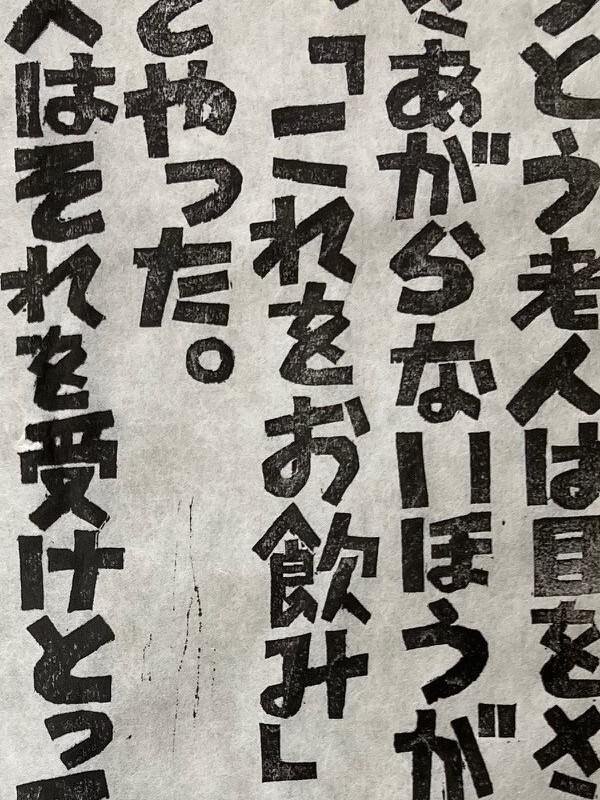 とう老人は目をさ
あがらないほうが
「これをお飲み」
とやった。
へはそれを受けとっ